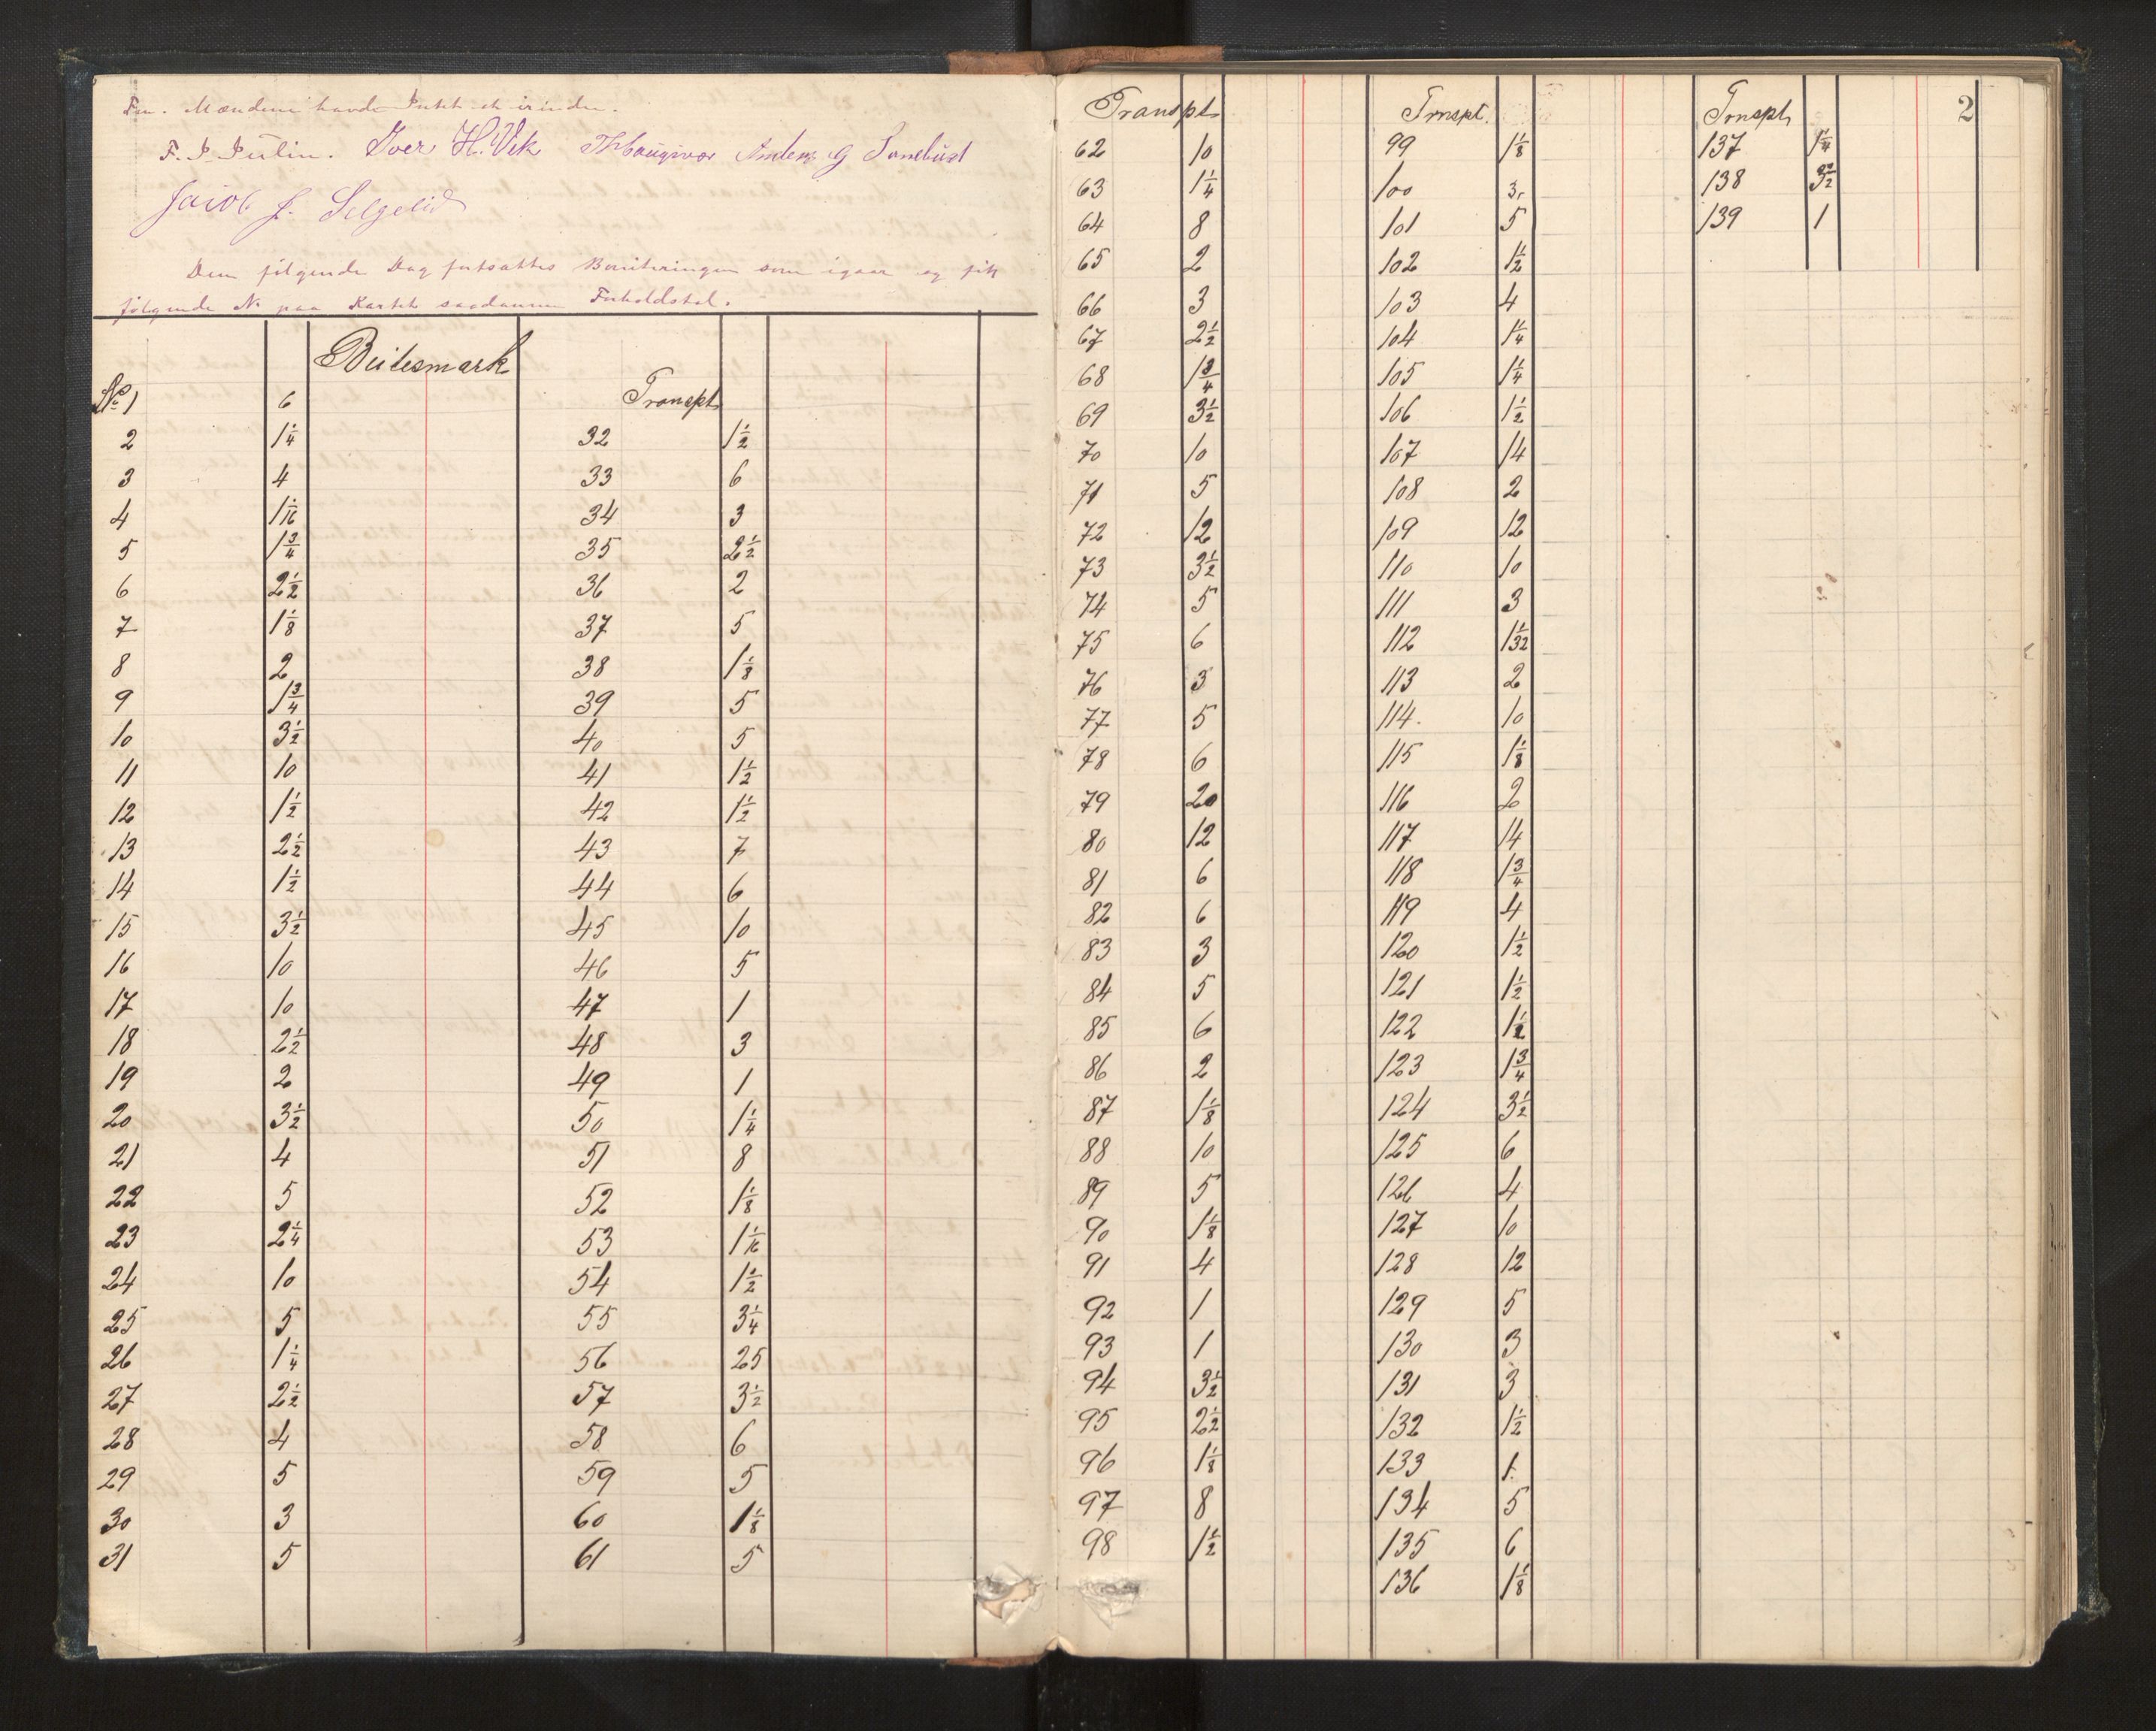 Fm. Mændene havde Intet at erindre.
F. J. Iver H. Vik Anders G Sandbust
Jacob J. Selgelid
Den følgende Dag fortsattes Boniteringen som igaar og fik
følgende No paa Kartet saadanne Forholdstal.
Beitesmark
No. 1 6
2 1 1/4
3 4
4 1 1/16
5 1 3/4
6 2 1/2
7 1 1/8
8 2
9 1 3/4
10 3 1/2
11 10
12 1 1/2
13 2 1/2
14 1 1/2
15 3 1/2
16 10
17 10
18 2 1/2
19 2
20 3 1/2
21 4
22 5
23 2 1/4
24 10
25 5
26 1 1/4
27 2 1/2
28 4
29 5
30 3
31 5
Transpt
32 1 1/2
33 6
34 3
35 2 1/2
36 2
37 5
38 1 1/8
39 5
40 5
41 1 1/2
42 1 1/2
43 7
44 6
45 10
46 5
47 1
48 3
49 1
50 1 1/4
51 8
52 1 1/8
53 1 1/16
54 1 1/2
55 3 1/4
56 25
57 3 1/2
58 6
59 5
60 1 1/8
61 5
Transpt
62 10
63 1 1/4
64 8
65 2
66 3
67 2 1/2
68 1 3/4
69 3 1/2
70 10
71 5
72 12
73 3 1/2
74 5
75 6
76 3
77 5
78 6
79 20
80 12
81 6
82 6
83 3
84 5
85 6
86 2
87 1 1/8
88 10
89 5
90 1 1/8
91 4
92 1
93 1
94 3 1/2
95 2 1/2
96 1 1/8
97 8
98 1 1/2
Trnspt.
99 1 1/8
100 3
101 5
102 1 1/2
103 4
104 1 1/4
105 1 1/4
106 1 1/2
107 14
108 2
109 12
110 10
111 3
112 1 1/32
113 2
114. 10
115 1 1/8
116 2
117 14
118 1 3/4
119 4
120 1 1/2
121 1 1/2
122 1 1/2
123 1 3/4
124 3 1/2
125 6
126 4
127 10
128 12
129 5
130 3
131 3
132 1 1/2
133 1
134 5
135 6
136 1 1/8
Trnspt
2
137 1 1/4
138 3 1/2
139 1